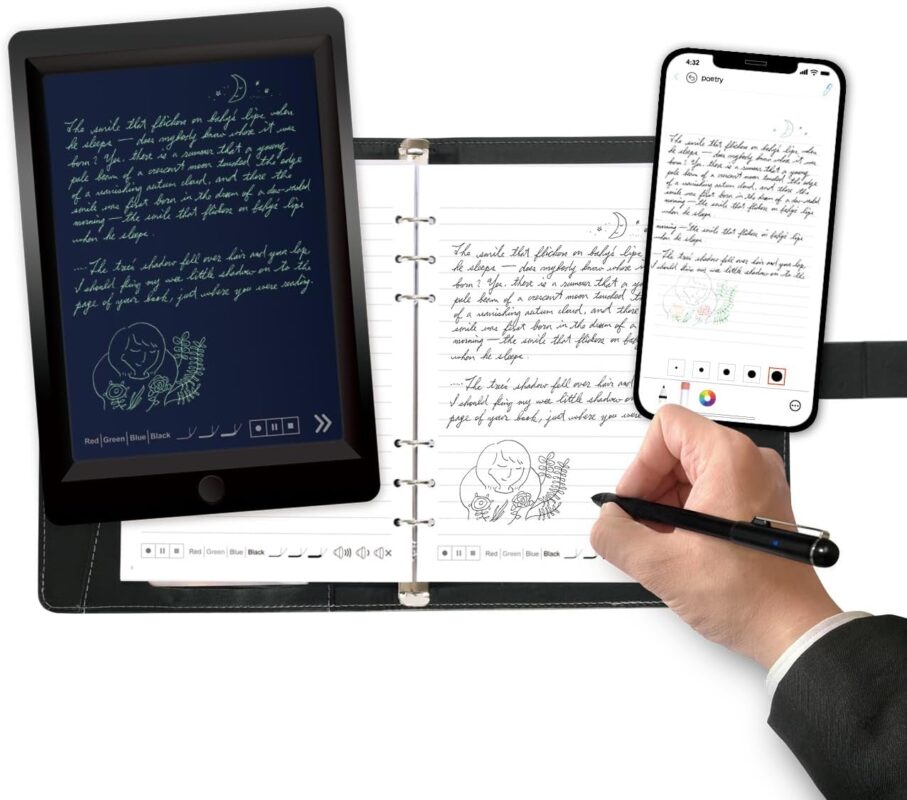 The smile that flickers on baby's lips when
he sleeps — does anybody know where it was
born? Yes, there is a rumor that a young
pale beam of a crescent moon touched the edge
of a vanishing autum cloud, and there the
smile was first born in the dream of a dew-washed
morning — the smile that flickers on baby's lips
when he sleeps.
....The tree's shadow fell over hair and your lap.
I should fling my wee little shadow on to the
page of your book, just where you were reading.
Red|Green|Blue|Black
The smile that flickers on baby's lips
he sleeps — does anybody know where i
born? Yes, there is a rumor that a y
pale beam of a crescent moon touched t
of a vanishing autum cloud, and there
smile was first born in the dream of a
morning — the smile that flickers on bab
when he sleeps.
....The tree's shadow fell over hair and
I should fling my wee little shadow on
page of your book, just where you were
Red|Green|Blue|Black
Red|Green|Blue|Black
4:32
poetry
The smile that flickers on baby's lips when
he sleeps — does anybody know where it was
born? Yes, there is a rumor that a young
pale beam of a crescent moon touched the edge
of a vanishing autum cloud, and there the
smile was first born in the dream of a
morning — the smile that flickers on baby's lips
when he sleeps.
The tree's shadow fell over hair and your lap.
I should fling my wee little shadow on to the